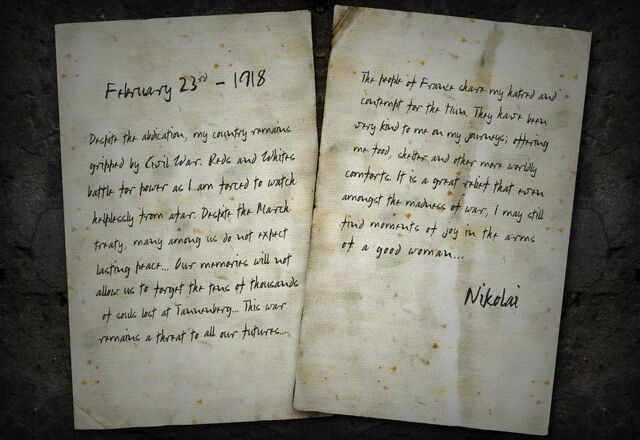 February 23rd - 1918
Despite the abdication, my country remains
gripped by Civil War. Reds and Whites
battle for power as I am forced to watch
helplessly from afar. Despite the March
treaty, many among us do not expect
lasting peace... Our memories will not
allow us to forget the tens of thousands
of souls lost at Tannenberg... This war
remains a threat to all our futures...
The people of France share my hatred and
contempt for the Hun. They have been
very kind to me on my journeys; offering
me food, shelter and other more worldly
comforts. It is a great relief that even
amongst the madness of war, I may still
find moments of joy in the arms
of a good woman...
Nikolai